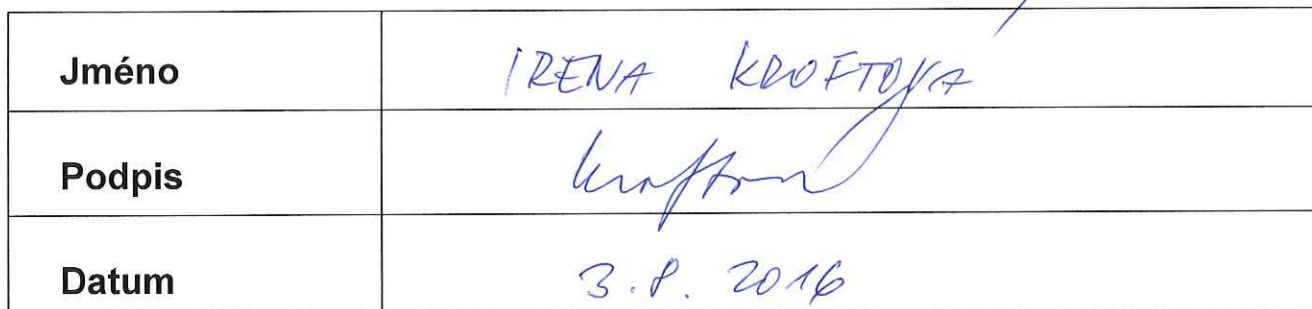 Jméno IRENA KROFTOVÁ
Podpis
Datum 3.8. 2016